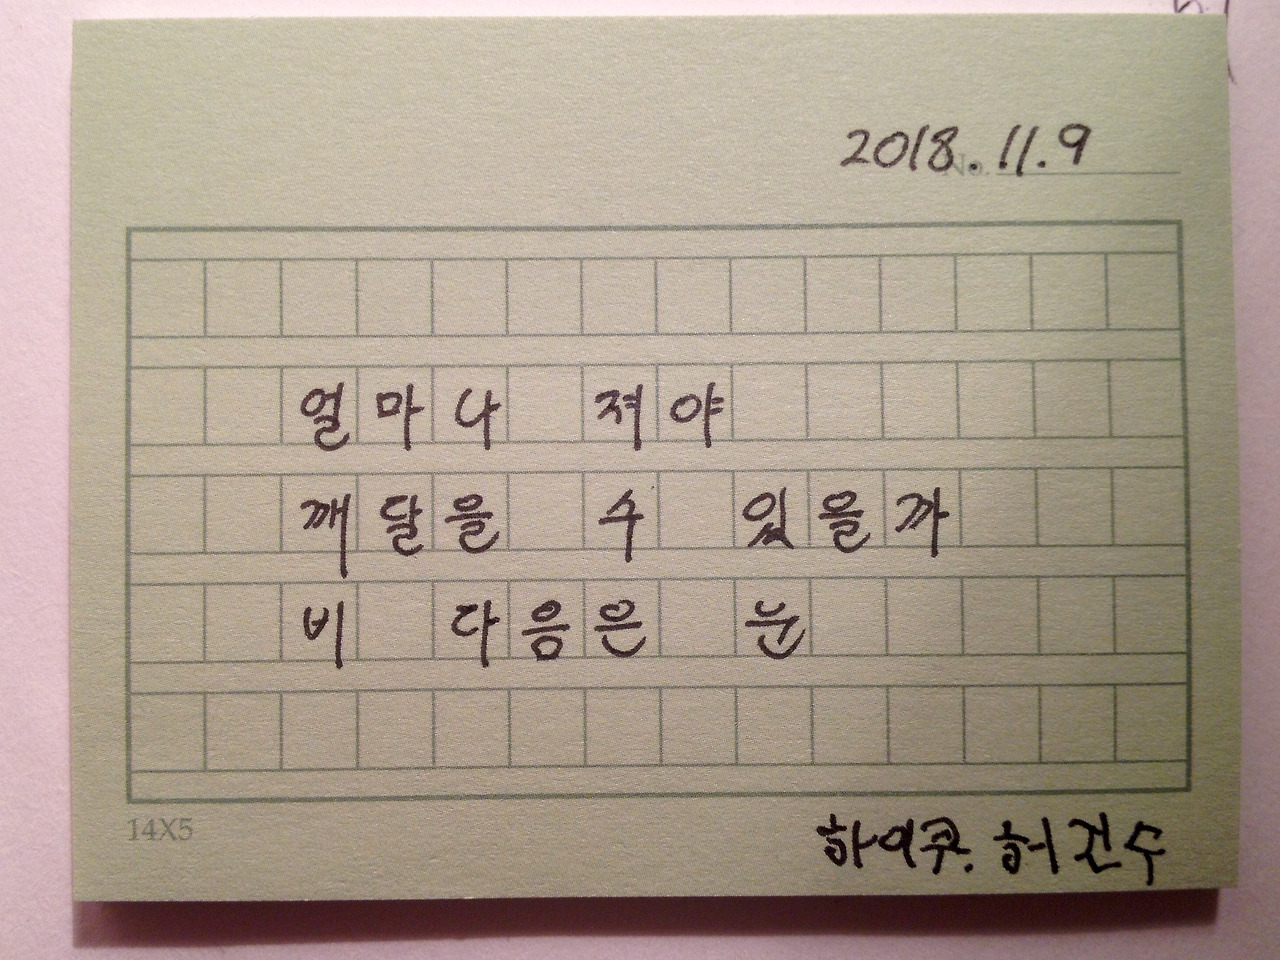 2018. 11. 9
No.
얼마나 져야
깨달을 수 있을까
비 다음은 눈
14X5
하이쿠. 허건수